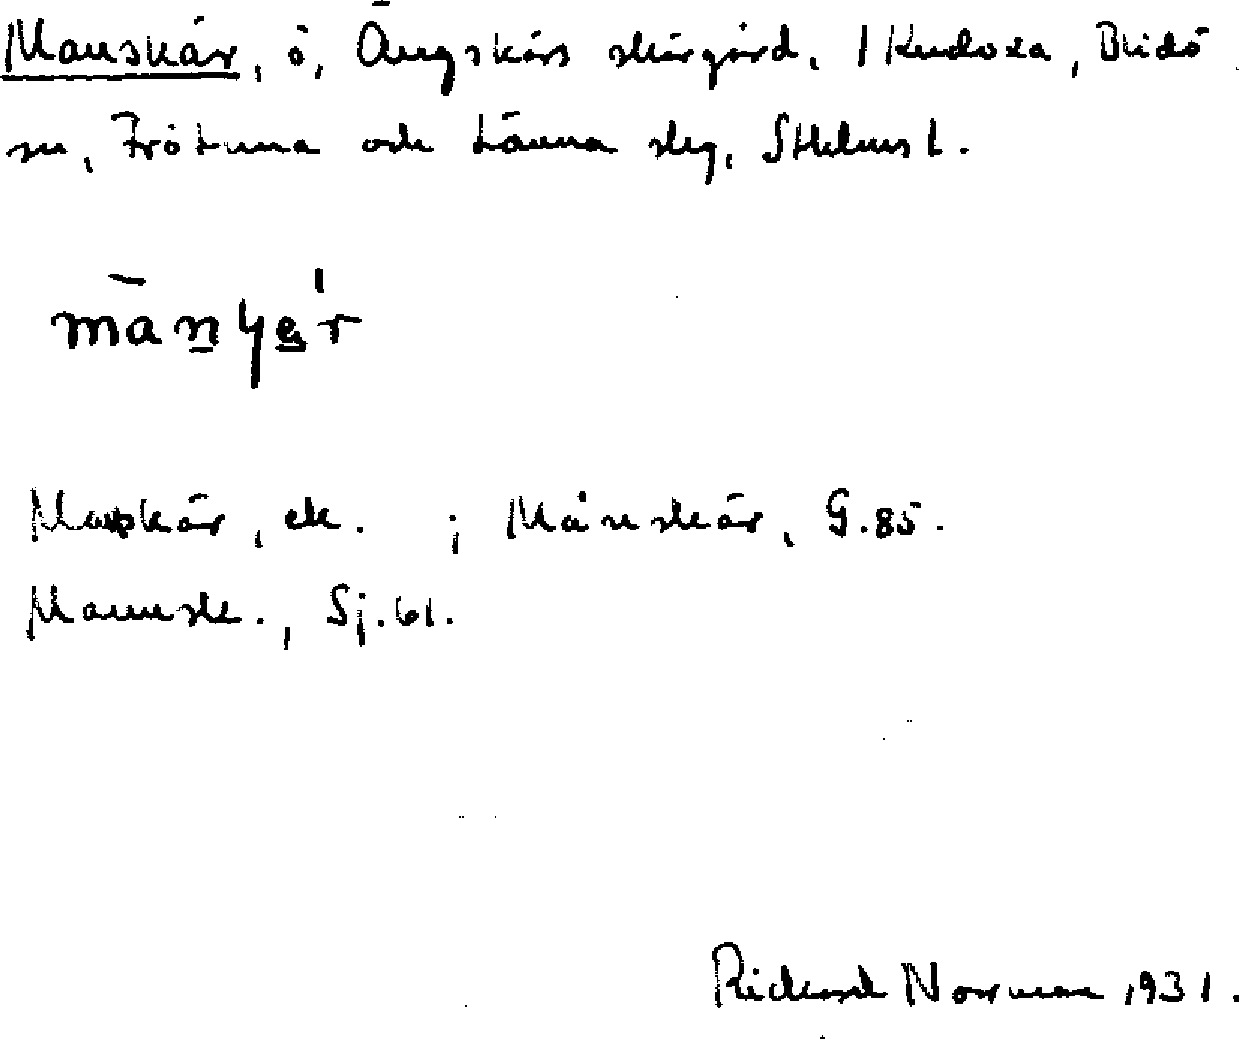 Manskär, ö, Ängskärs skärgård, 1 Kudoxa, Blidö
sn, Frötuna och Länna skg, Sthlms l.
mànɥɐ̲́r
Manskär, ek. ; Månskär, G.85.
Mannsk., Sj.61.
Rickard Norrman 1931.